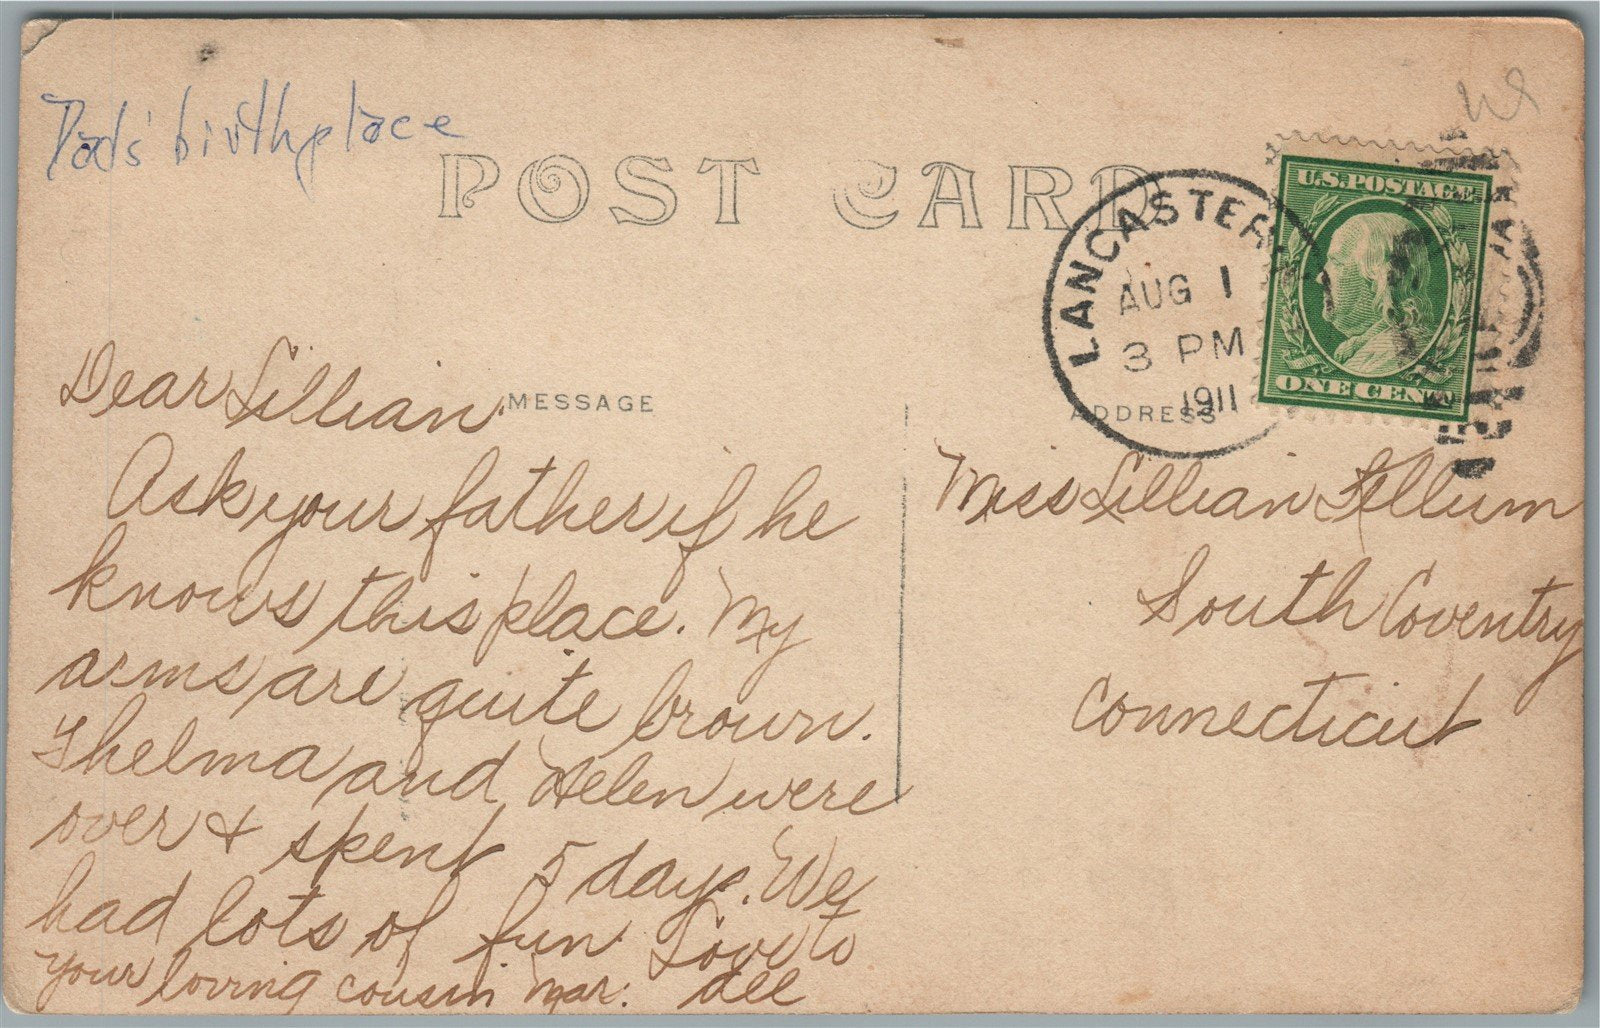 Dad's birthplace
POST CARD
U.S. POSTAGE
ONE CENT
LANCASTER
AUG 1
3 PM
1911
MESSAGE
ADDRESS
Dear Lillian.
Ask your father if he
knows this place. My
arms are quite brown.
Thelma and Helen were
over & spent 5 days. We
had lots of fun. Love to
your loving cousin Mar. all
Miss Lillian
South Coventry
Connecticut